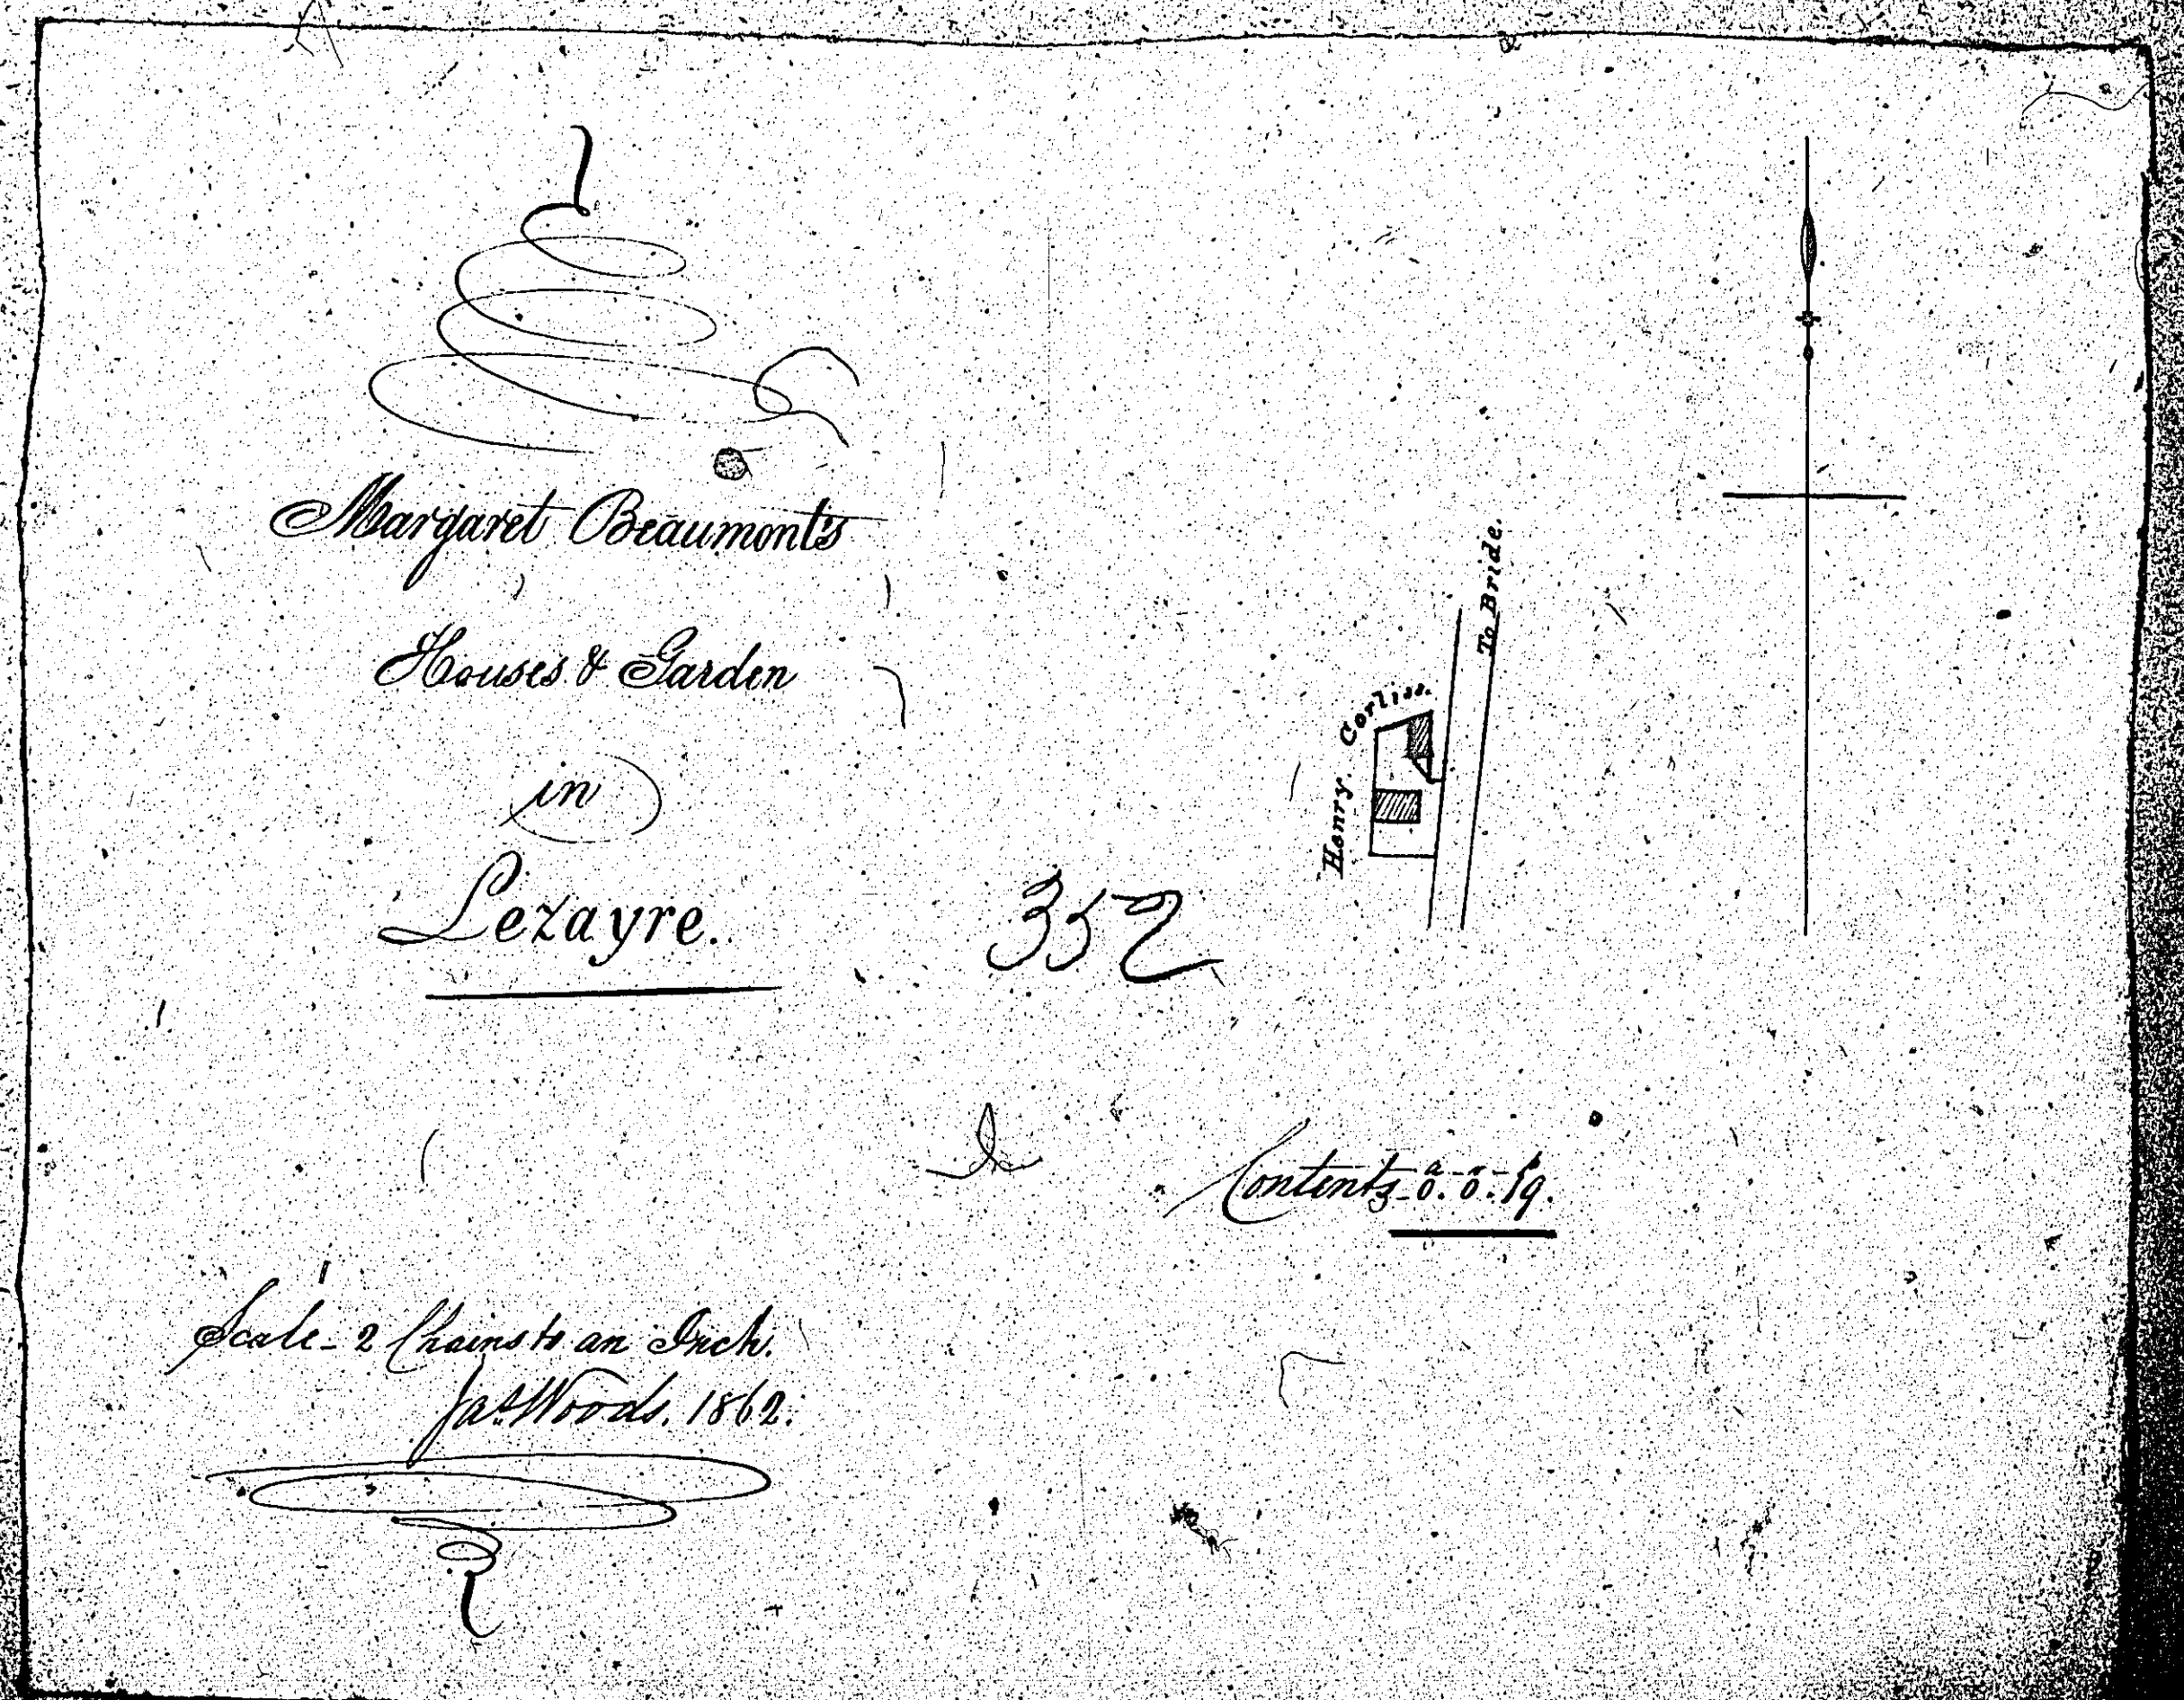 Margaret Beaumont's
Houses & Garden
in
Lezayre.
352
To Bride.
Henry. Corliss.
Contents - 0.ᵃ 0.ʳ 19.ᵖ
Scale - 2 Chains to an Inch.
Jaˢ. Woods. 1862.